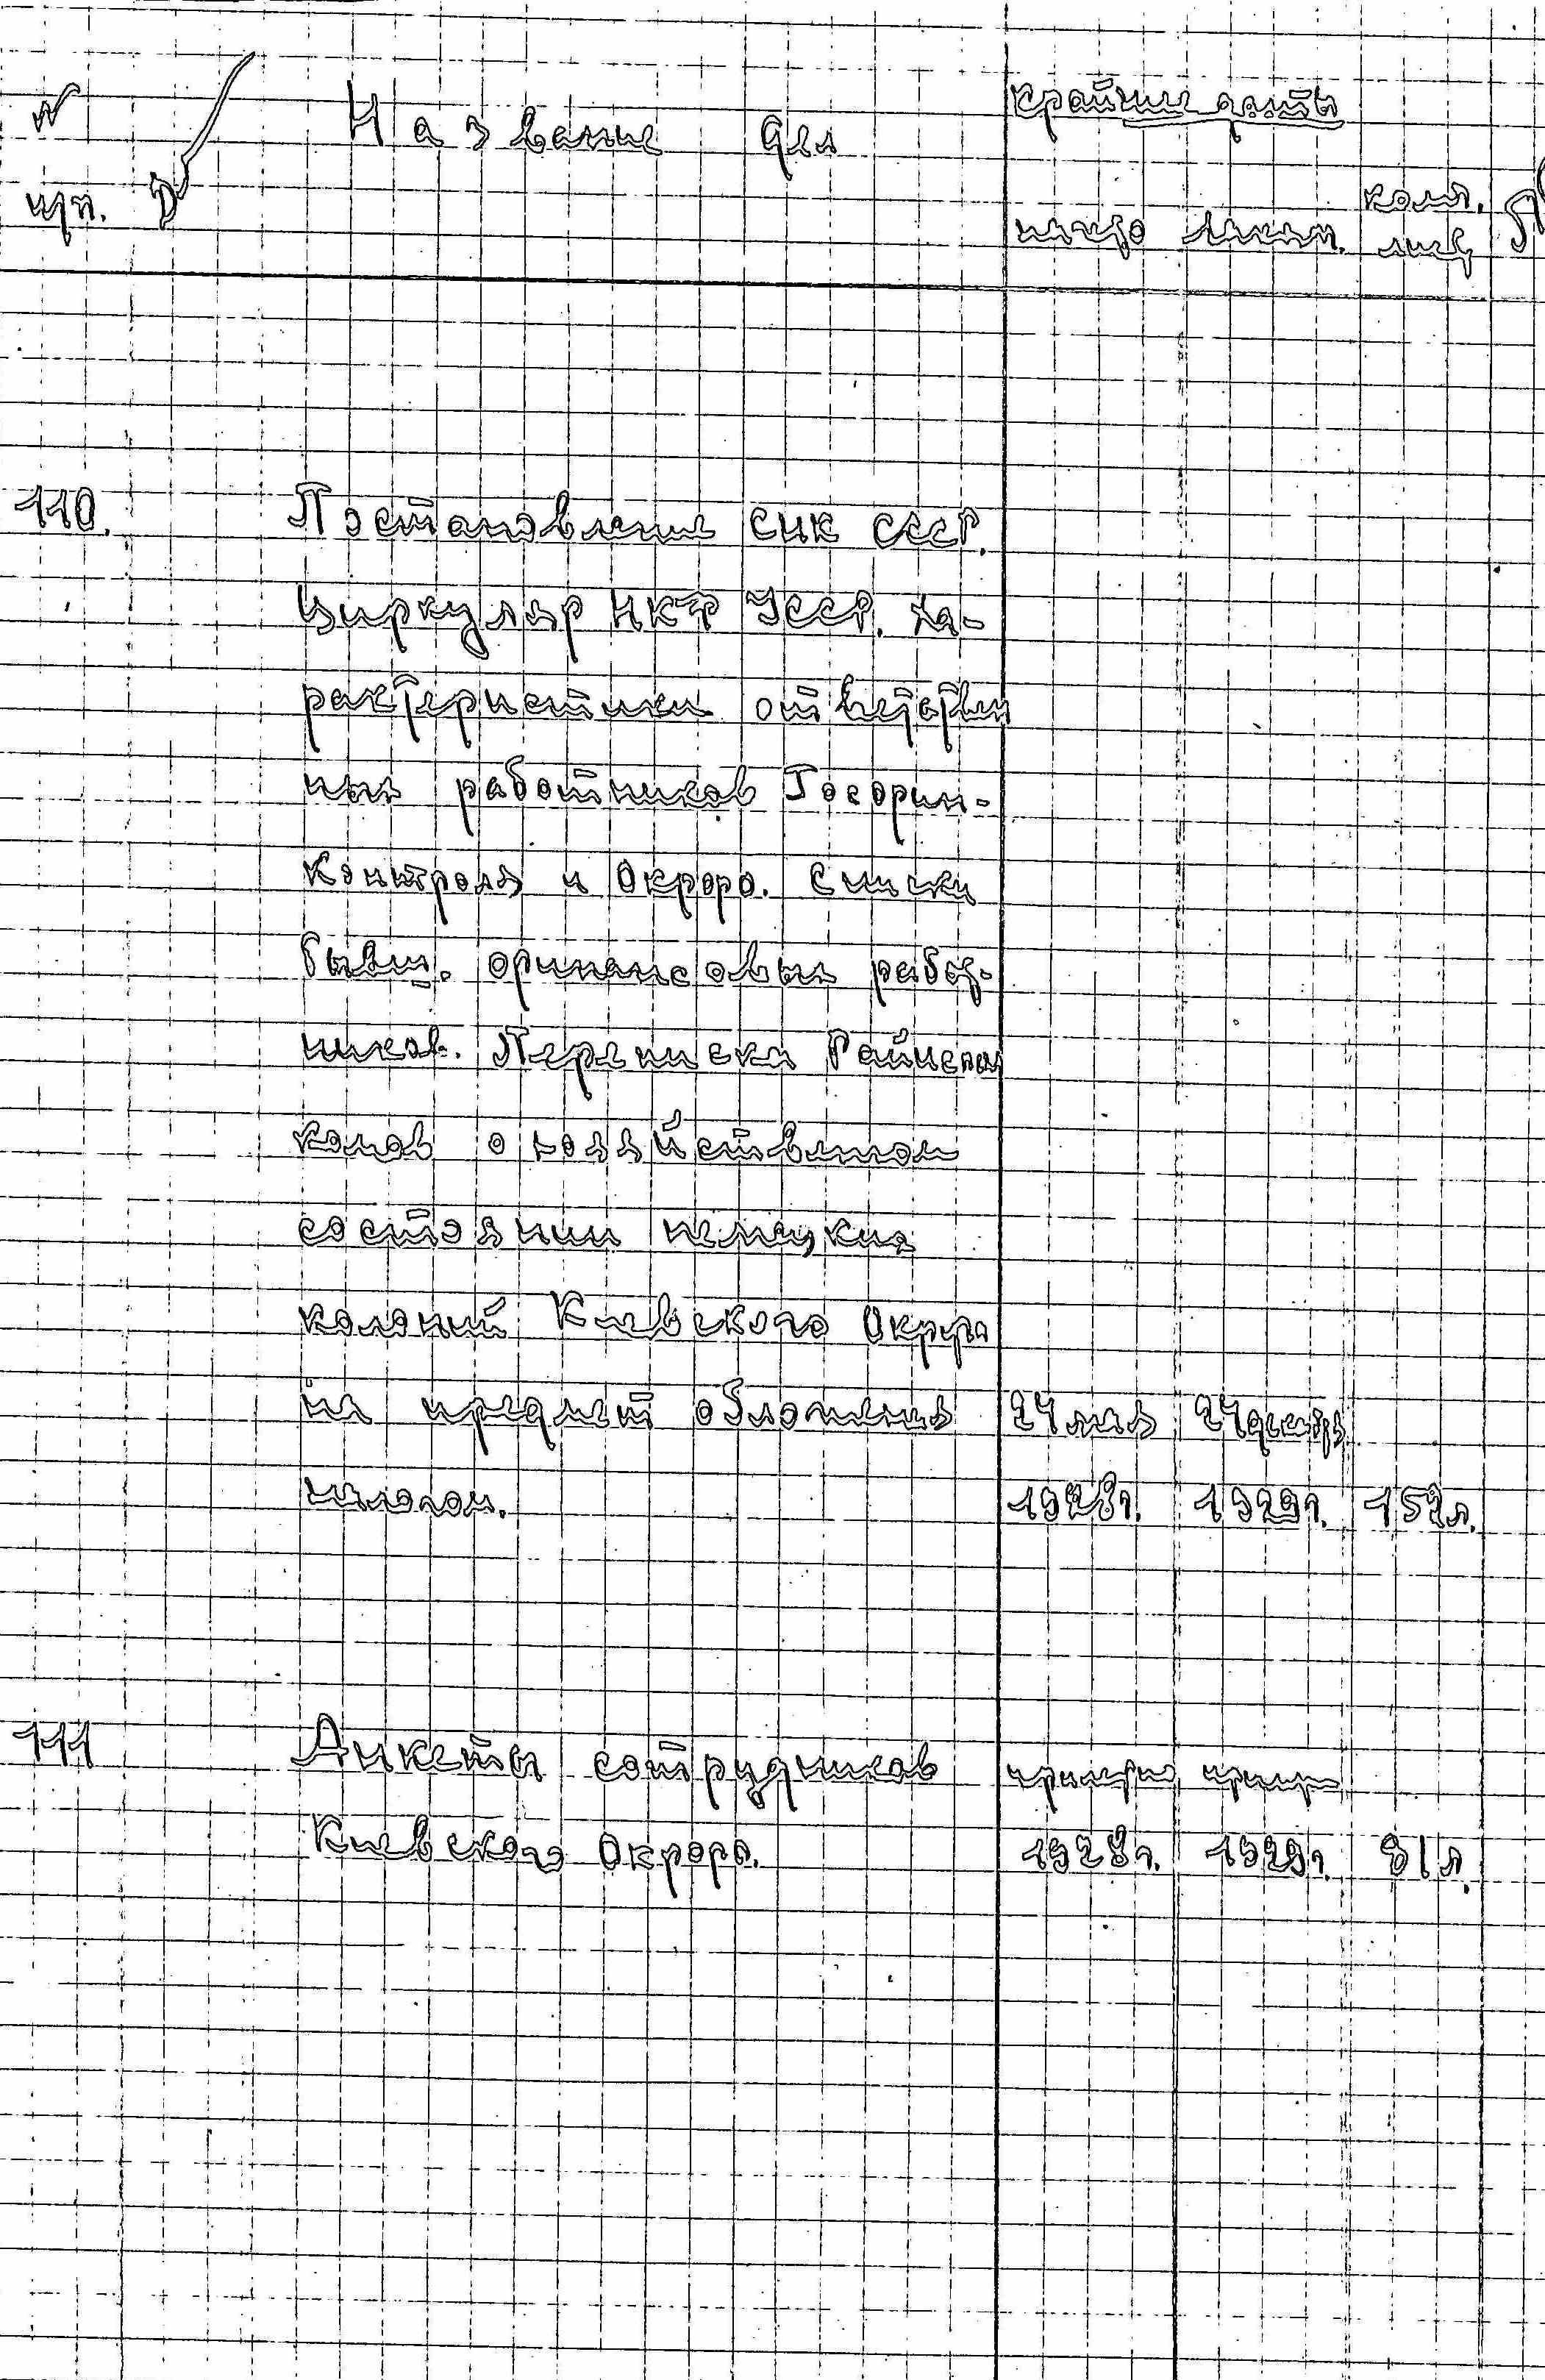 № Название дел крайние даты
п/п. начало оконч. колич. лис
110. Постановление СНК СССР.
Циркуляр НКФ УССР. Ха-
рактеристики ответствен
ных работников Госфин-
контроля и Окрфо. Списки
бывш. финансовых работ-
ников. Переписка Райиспол
комов о хозяйственном
состоянии немецких
колоний Киевского Округа
на предмет обложения 24 мая 24 декабря
налогом. 1928г. 1929г. 152л.
111 Анкеты сотрудников примерно пример
Киевского Окрфо. 1928г. 1929г. 81л.